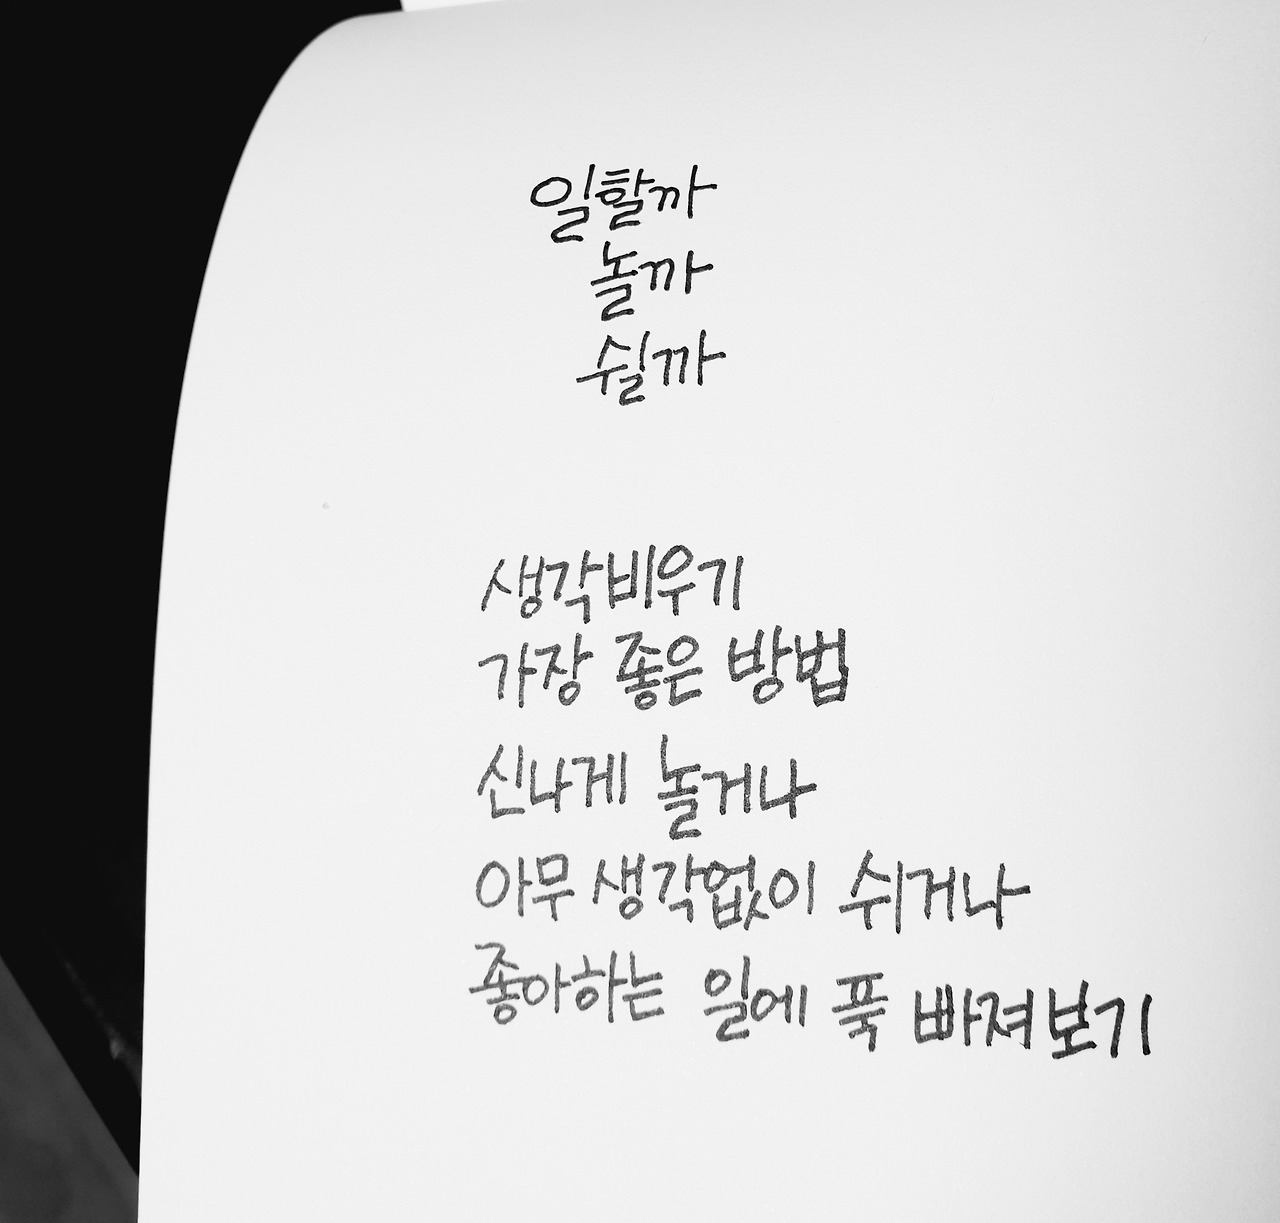 일할까
놀까
쉴까
생각비우기
가장 좋은 방법
신나게 놀거나
아무 생각없이 쉬거나
좋아하는 일에 푹 빠져보기